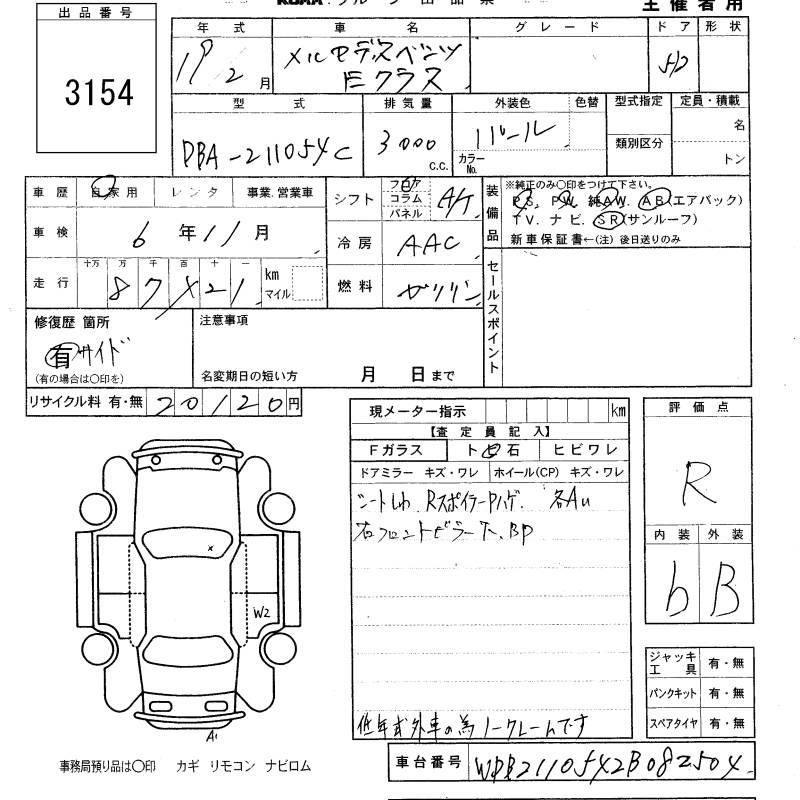 出品番号
3154
主催者用
年式 車名 グレード ドア 形状
19 2 月 メルセデスベンツ Eクラス 5D
型式 排気量 外装色 色替 型式指定 定員・積載
類別区分 名
DBA-211054C 3000 c.c. パール カラーNo. トン
車歴 自家用 レンタ 事業.営業車
シフト フロア コラム パネル A/T
装備品 ※純正のみ○印をつけて下さい。
PS. PW. 純AW. AB(エアバック)
TV. ナビ. SR(サンルーフ)
新車保証書←(注) 後日送りのみ
車検 6 年 11 月
冷房 AAC
走行 十万 万 千 百 十 一
8 7 × 2 1 km マイル
燃料 ガソリン
セールスポイント
修復歴 箇所 注意事項
有 サイド
(有の場合は○印を)
名変期日の短い方 月 日まで
リサイクル料 有・無 20120 円
現メーター指示 km
【査定員記入】
Fガラス ト ビ 石 ヒビワレ
ドアミラー キズ・ワレ ホイール(CP) キズ・ワレ
シートしわ RスポイラーPハゲ. 各AU
右フロントピラー下.BP
低年式外車の為ノークレームです
評価点
R
内装 外装
b B
W2
A1
ジャッキ工具 有・無
パンクキット 有・無
スペアタイヤ 有・無
事務局預り品は○印 カギ リモコン ナビロム
車台番号 WDB2110542B082504